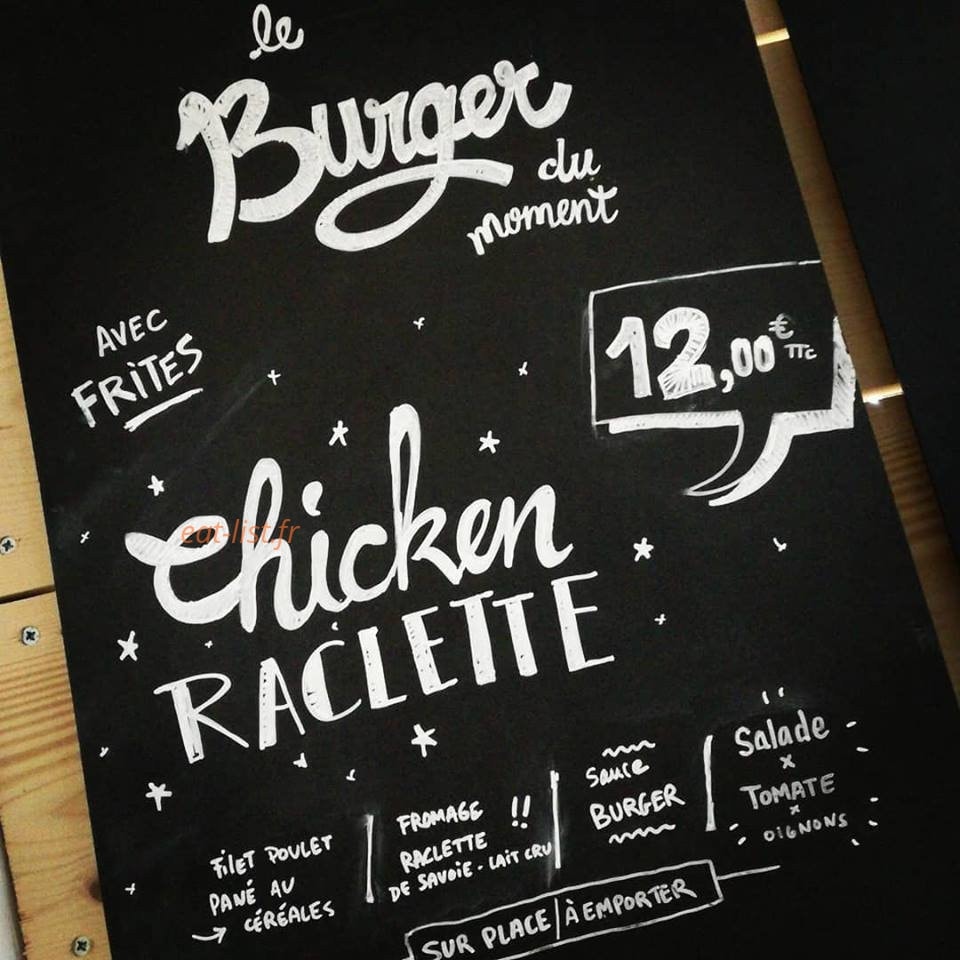 le
Burger
du
moment
AVEC
FRITES
12,00€
TTC
Chicken
eat-list.fr
RACLETTE
FILET POULET
PANÉ AU
CÉRÉALES
FROMAGE !!
RACLETTE
DE SAVOIE - LAIT CRU
Sauce
BURGER
Salade
x
TOMATE
x
OIGNONS
SUR PLACE | À EMPORTER